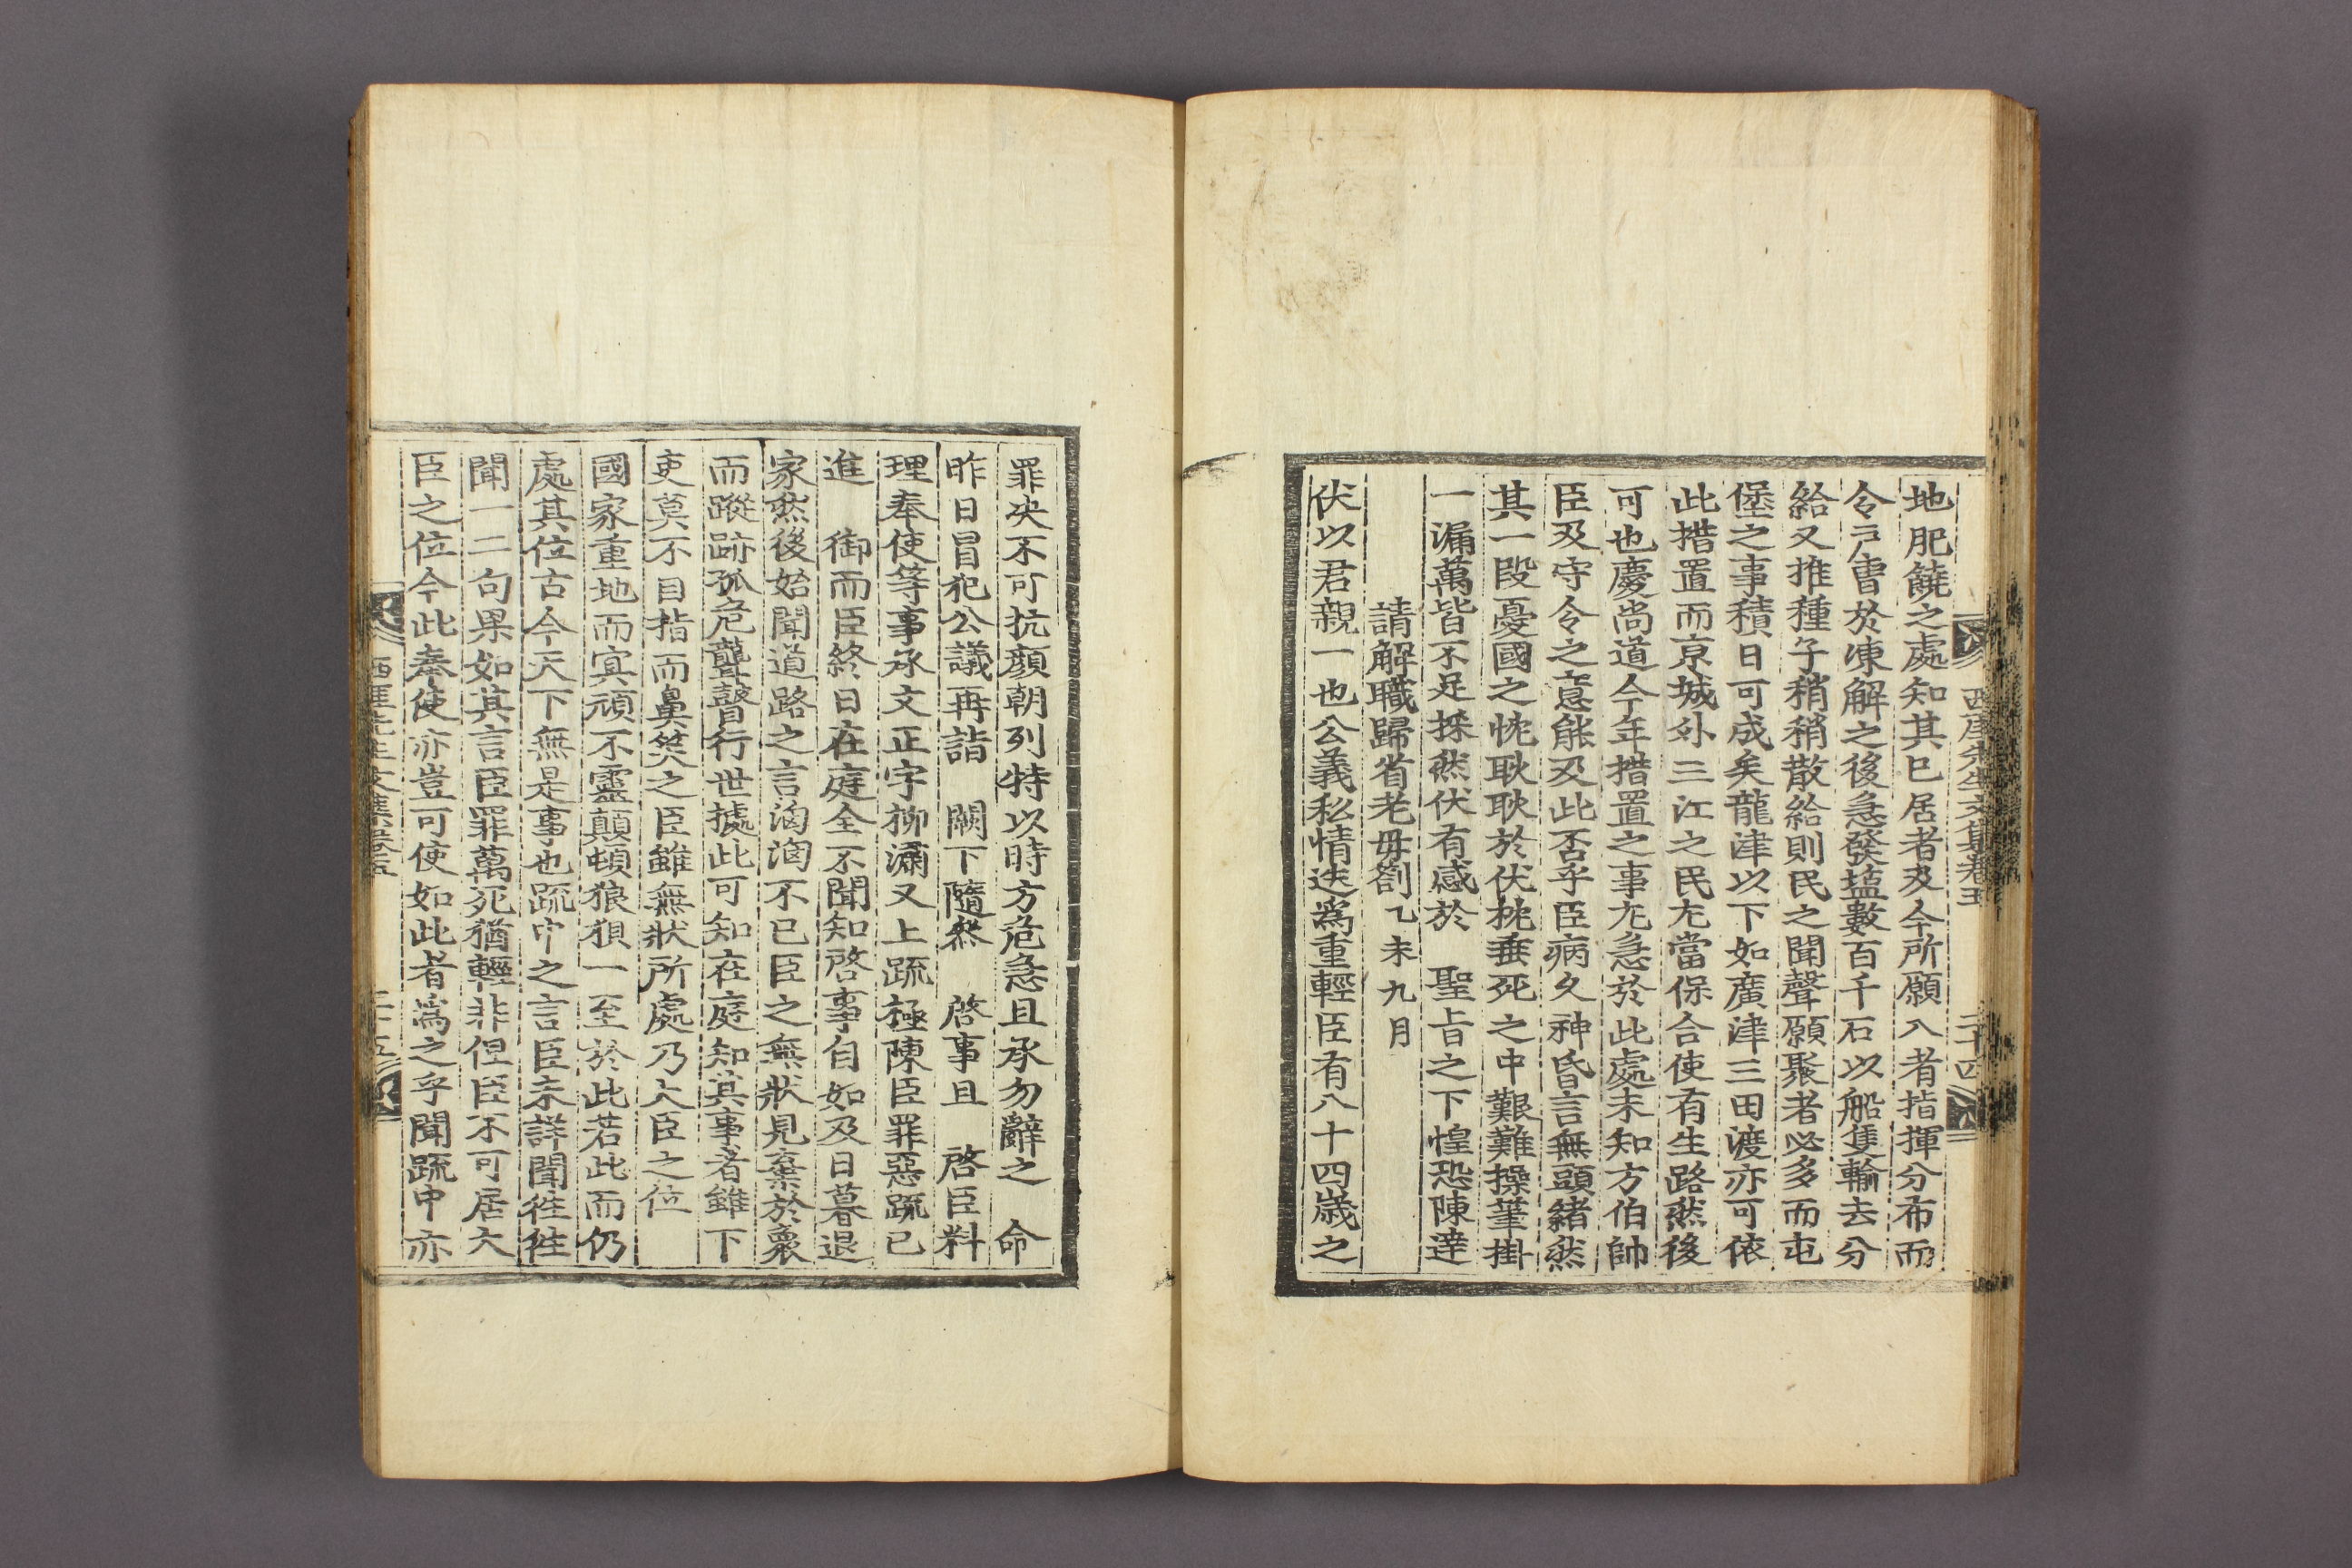 西厓先生文集卷五 二十四
地肥饒之處知其已居者及今所願入者指揮分布而
令戶曹於凍解之後急發塩數百千石以船隻輸去分
給又推種子稍稍散給則民之聞聲願聚者必多而屯
堡之事積日可成矣龍津以下如廣津三田渡亦可依
此措置而京城外三江之民尤當保合使有生路然後
可也慶尚道今年措置之事尤急於此處未知方伯帥
臣及守令之意能及此否乎臣病久神昏言無頭緒然
其一段憂國之忱耿耿於伏枕垂死之中艱難操筆掛
一漏萬皆不足採然伏有感於 聖旨之下惶恐陳達
請解職歸省老母劄乙未九月
伏以君親一也公義私情迭爲重輕臣有八十四歲之
罪決不可抗顔朝列特以時方危急且承勿辭之 命
昨日冒犯公議再詣 闕下隨然 啓事且 啓臣料
理奉使等事承文正字柳瀟又上疏極陳臣罪惡疏已
進 御而臣終日在庭全不聞知啓事自如及日暮退
家然後始聞道路之言洶洶不已臣之無狀見棄於衆
而蹤跡孤危聾瞽行世據此可知在庭知其事者雖下
吏莫不目指而鼻笑之臣雖無狀所處乃大臣之位
國家重地而冥頑不靈顛頓狼狽一至於此若此而仍
處其位古今天下無是事也疏中之言臣未詳聞徃徃
聞一二句果如其言臣罪萬死猶輕非但臣不可居大
臣之位今此奉使亦豈可使如此者爲之乎聞疏中亦
西厓先生文集卷五 二十五